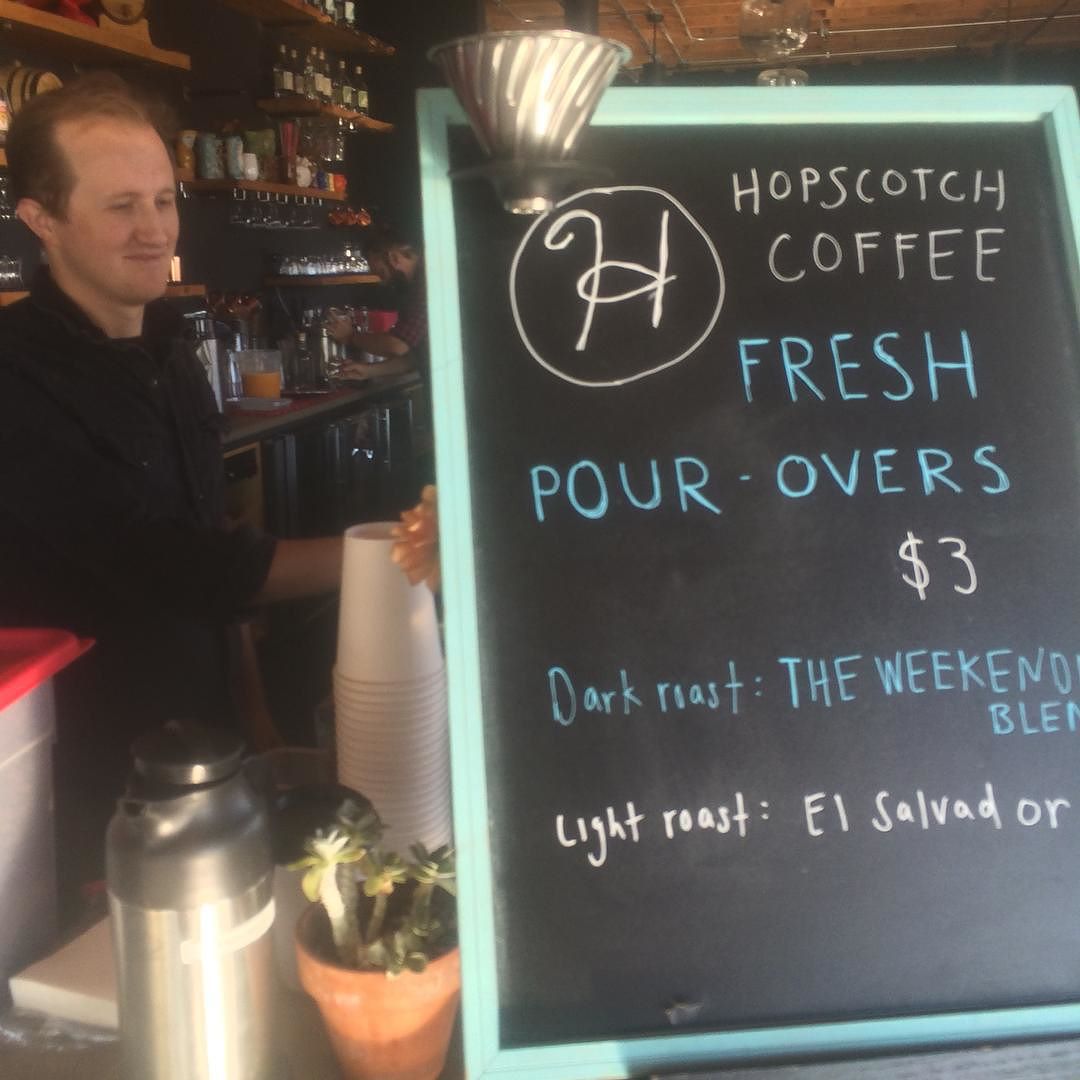 H
HOPSCOTCH
COFFEE
FRESH
POUR-OVERS
$3
Dark roast: THE WEEKEND
BLEN
Light roast: El Salvador